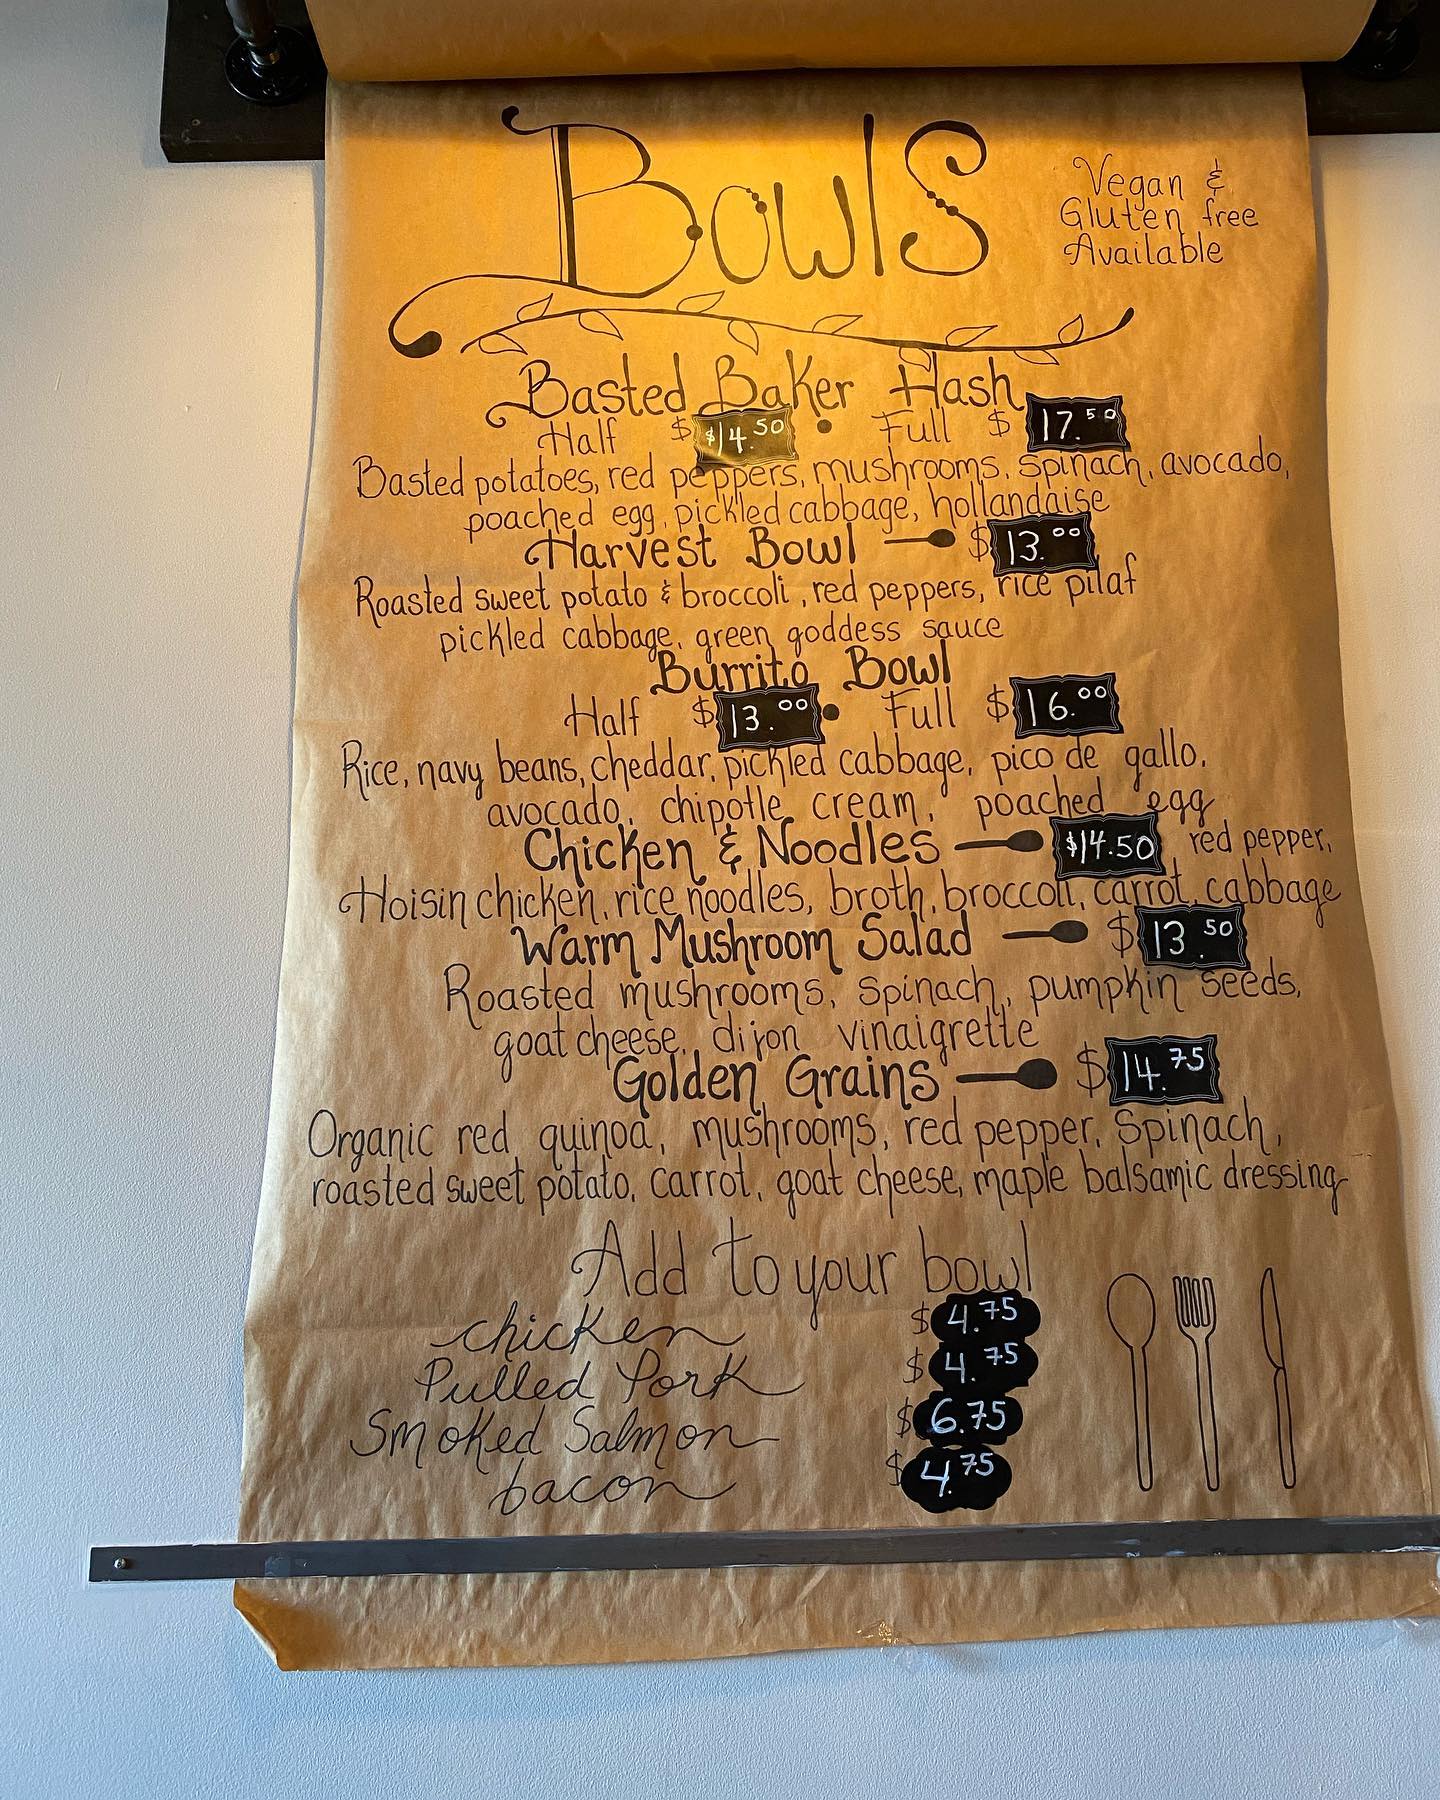 Bowls
Vegan &
Gluten free
Available
Basted Baker Hash
Half $ $14.50 • Full $ 17.50
Basted potatoes, red peppers, mushrooms, spinach, avocado,
poached egg, pickled cabbage, hollandaise
Harvest Bowl $ 13.00
Roasted sweet potato & broccoli, red peppers, rice pilaf
pickled cabbage, green goddess sauce
Burrito Bowl
Half $ 13.00 • Full $ 16.00
Rice, navy beans, cheddar, pickled cabbage, pico de gallo,
avocado, chipotle cream, poached egg
Chicken & Noodles $14.50 red pepper,
Hoisin chicken, rice noodles, broth, broccoli, carrot, cabbage
Warm Mushroom Salad $ 13.50
Roasted mushrooms, spinach, pumpkin seeds,
goat cheese, dijon vinaigrette
Golden Grains $ 14.75
Organic red quinoa, mushrooms, red pepper, spinach,
roasted sweet potato, carrot, goat cheese, maple balsamic dressing
Add to your bowl
chicken $ 4.75
Pulled Pork $ 4.75
Smoked Salmon $ 6.75
bacon $ 4.75